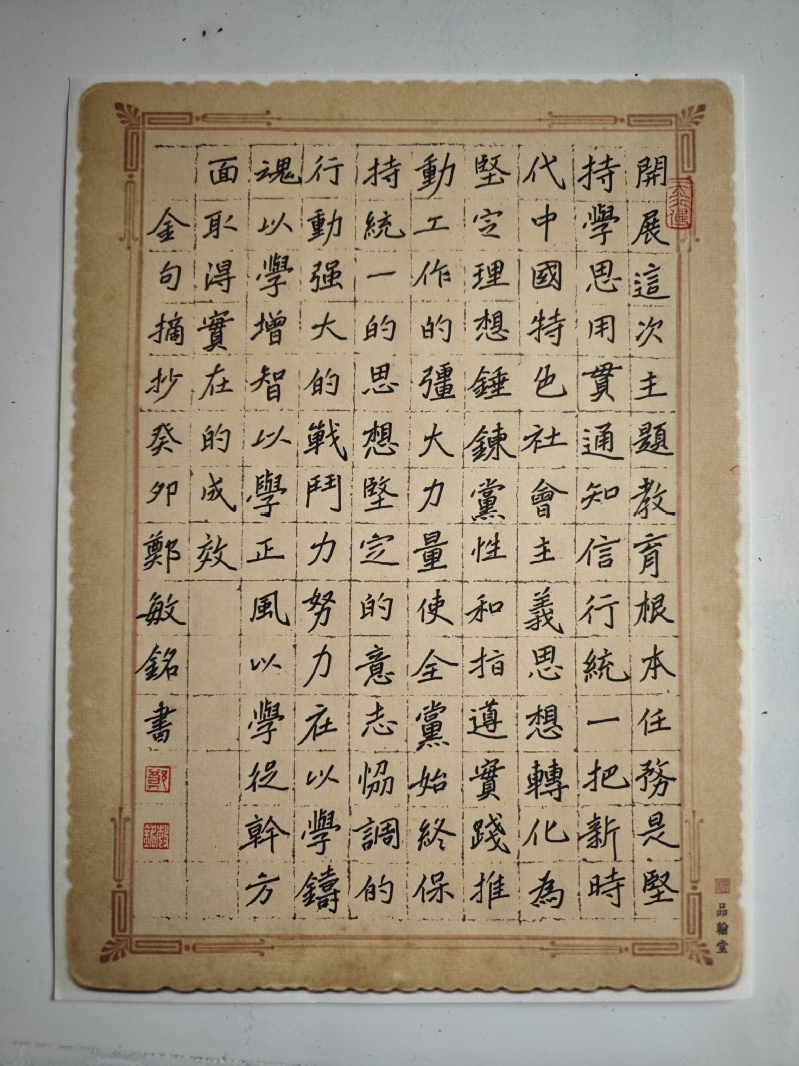 開展這次主題教育根本任務是堅
持學思用貫通知信行統一把新時
代中國特色社會主義思想轉化為
堅定理想錘鍊黨性和指遵實踐推
動工作的彊大力量使全黨始終保
持統一的思想堅定的意志恊調的
行動强大的戰鬥力努力在以學鑄
魂以學增智以學正風以學從幹方
面取得實在的成效
金句摘抄癸卯鄭敏銘書
鄭
敏銘
品翰堂